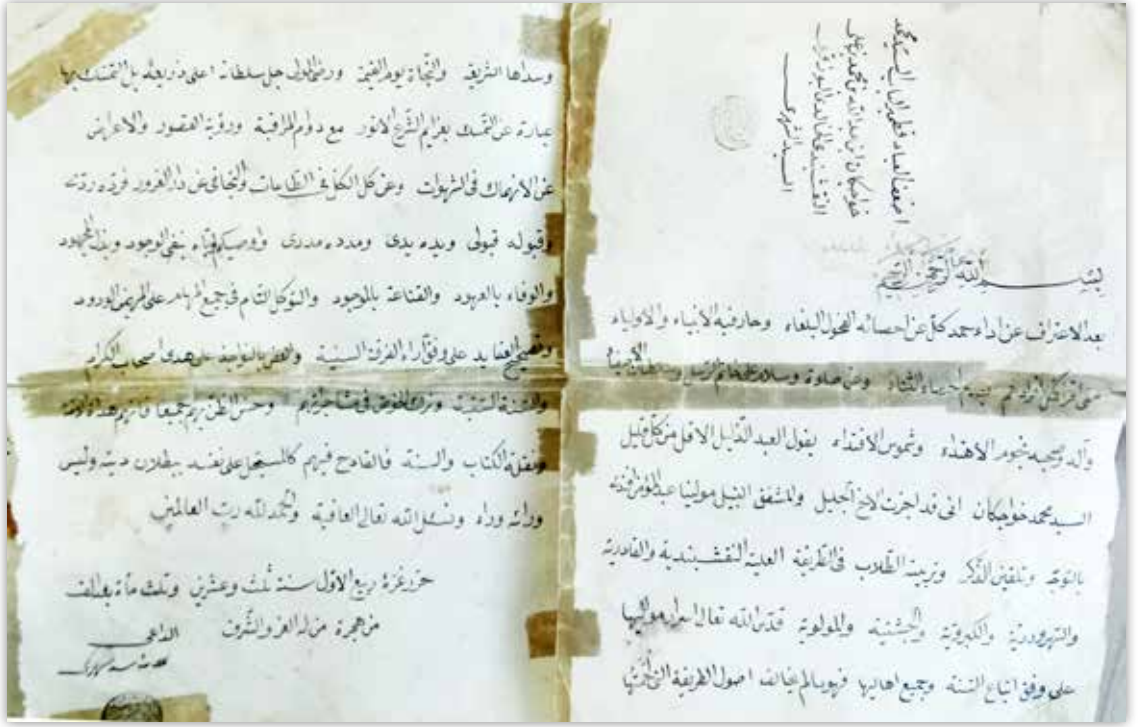 اضعف العباد قطمير الباب السيد محمد
خواجكان ابن عبد الله بن محمد
النقشبندي الخالدي
السيد الشهير
بسم الله الرحمن الرحيم
بعد الاعتراف عن اداء حمد كل عن احصائه الفحول البلغاء وحار فيه الانبياء والاولياء
وآله وصحبه نجوم الاهتداء وشموس الاقتداء يقول العبد الذليل الاقل من كل قليل
السيد محمد خواجكان انى قد اجزت لاخ الجليل وللشفق النبيل مولينا عبد المؤمن افندى
بالتوجه وتلقين الذكر وتربية الطلاب فى الطريقة العلية النقشبندية والقادرية
والسهروردية والكبروية والجشتية والمولوية قدس الله تعالى اسرار مواليها
على وفق اتباع السنة وجميع اهاليها فهو ما لم يخالف اصول الطريقة التى
وسداها الشريفة والنجاة يوم القيمة ورضى المولى جل سلطانه اعلى ذريعة بل التمسك بها
عبارة عن التمسك بعزايم الشرع الانور مع دوام المراقبة ورؤية القصور والاعراض
عن الانهماك فى الشهوات وعن كل الكل فى الطاعات والتجافى عن دار الغرور فرده ردى
وقبوله قبولى ويده يدى ومدده مددى واوصيكم واياه بنفى الوجود وبذل المجهود
والوفاء بالعهود والقناعة بالموجود والتوكل التام فى جميع المهام على الورود
وتصحيح العقايد على وفق آراء الفرقة السنية والعض بالنواجذ على هدى اصحاب الكرام
والسنة السنية وترك الخوض فى مشاجراتهم وحسن الظن بهم جميعا فانهم هداة الامة
ونقلة الكتاب والسنة فالقادح فيهم كالمسجل على نفسه ببطلان دينه وليس
ورائه وراء ونسئل الله تعالى العافية والحمد لله رب العالمين
حرر غرة ربيع الاول سنة ثلث وعشرين وثلث مأة بعد الف
من هجرة من له العز والشرف
الداعى